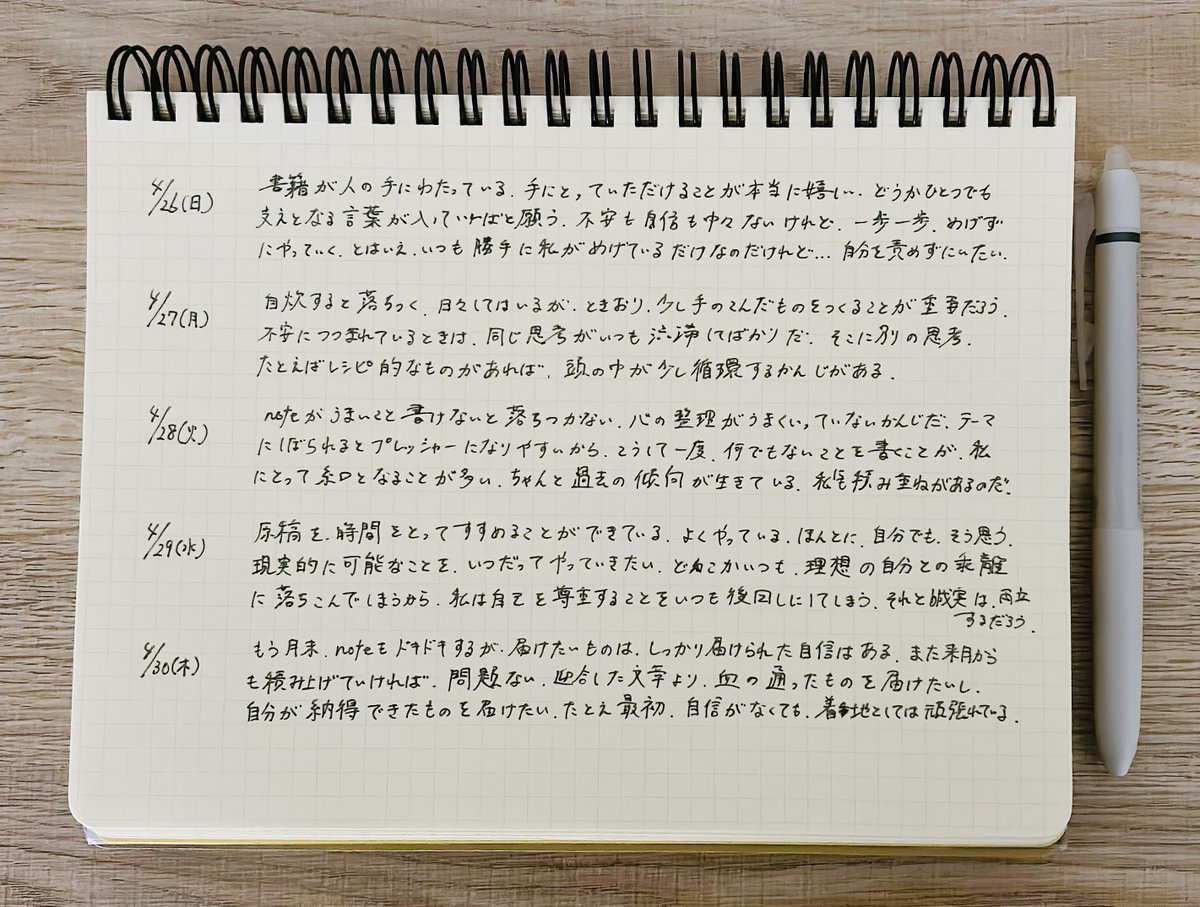 4/26(日) 書籍が人の手にわたっている。手にとっていただけることが本当に嬉しい。どうかひとつでも
支えとなる言葉が入っていればと願う。不安も自信も中々ないけれど、一歩一歩、めげず
にやっていく。とはいえ、いつも勝手に私がめげているだけなのだけれど… 自分を責めずにいたい。
4/27(月) 自炊すると落ちつく。日々してはいるが、ときおり、少し手のこんだものをつくることが重要だろう。
不安につつまれているときは、同じ思考がいつも渋滞してばかりだ。そこに別の思考、
たとえばレシピ的なものがあれば、頭の中が少し循環するかんじがある。
4/28(火) noteがうまいこと書けないと落ちつかない。心の整理がうまくいっていないかんじだ。テーマ
にしばられるとプレッシャーになりやすいから、こうして一度、何でもないことを書くことが、私
にとって糸口となることが多い。ちゃんと過去の傾向が生きている。私にも積み重ねがあるのだ。
4/29(水) 原稿を、時間をとってすすめることができている。よくやっている。ほんとに、自分でも、そう思う。
現実的に可能なことを、いつだってやっていきたい。どこかいつも、理想の自分との乖離
に落ちこんでしまうから、私は自己を尊重することをいつも後回しにしてしまう。それと誠実は、両立
するだろう。
4/30(木) もう月末。noteもドキドキするが、届けたいものは、しっかり届けられた自信はある。また来月から
も積み上げていければ、問題ない。迎合した文章より、血の通ったものを届けたいし、
自分が納得できたものを届けたい。たとえ最初、自信がなくても、着地としては頑張れている。